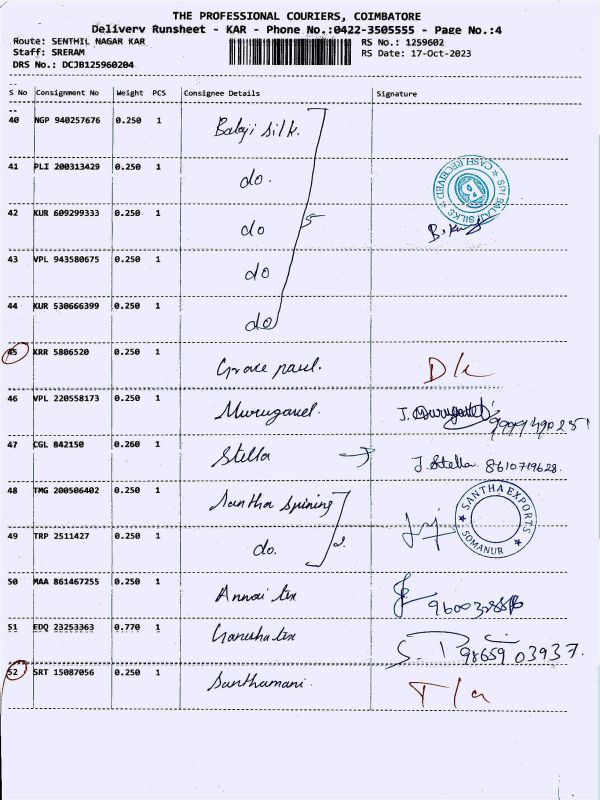 THE PROFESSIONAL COURIERS, COIMBATORE
Delivery Runsheet - KAR - Phone No.:0422-3505555 - Page No.:4
Route: SENTHIL NAGAR KAR RS No.: 1259602
Staff: SRERAM RS Date: 17-Oct-2023
DRS No.: DCJB125960204
S No Consignment No Weight PCS Consignee Details Signature
40 NGP 940257676 0.250 1 Balaji silk.
41 PLI 200313429 0.250 1 do. SRI BALAJI SILKS CASH RECEIVED
42 KUR 609299333 0.250 1 do 5
43 VPL 943580675 0.250 1 do
44 KUR 530666399 0.250 1 do
45 KRR 5806520 0.250 1 Grace paul. D/L
46 VPL 220558173 0.250 1 Murugavel. J. Murugavel
47 CGL 842150 0.260 1 Stella → J. Stella 8610719628.
48 TMG 200506402 0.250 1 Santha spining SANTHA EXPORTS SOMANUR
49 TRP 2511427 0.250 1 do. 2
50 MAA 861467255 0.250 1 Annai tex
51 EDQ 23253363 0.770 1 Ganusha tex 98659 03937.
52 SRT 15087056 0.250 1 Santhamani. T/a